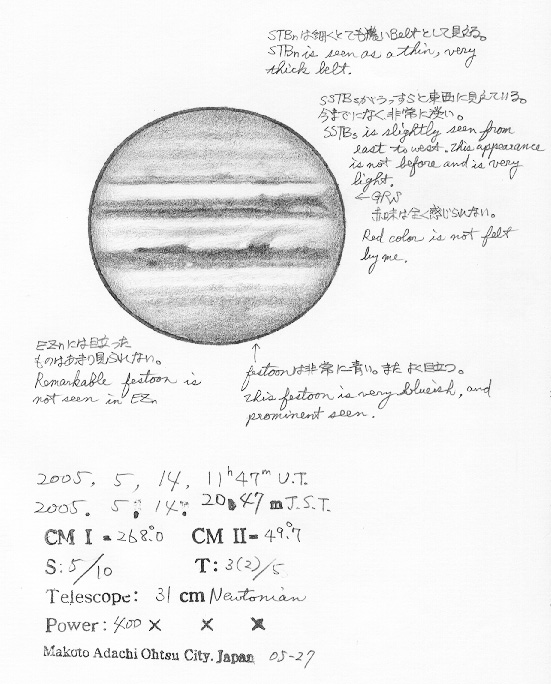 STBnは細くとても濃いBeltとして見える。
STBn is seen as a thin, very
thick belt.
SSTBsがうっすらと東西に見えている。
今までになく非常に淡い。
SSTBs is slightly seen from
east to west. This appearance
is not before and is very
light.
←GRS
赤味は全く感じられない。
Red color is not felt
by me.
EZnには目立った
ものはあまり見られない。
Remarkable festoon is
not seen in EZn
festoonは非常に青い。また よく目立つ。
This festoon is very blueish, and
prominent seen.
2005, 5, 14, 11h47m U.T.
2005. 5. 14. 20 47 m J.S.T.
CM I = 268.°0 CM II= 49.°7
S: 5/10 T: 3(2)/5
Telescope: 31 cm Newtonian
Power: 400 × × ×
Makoto Adachi Ohtsu City. Japan 05-27